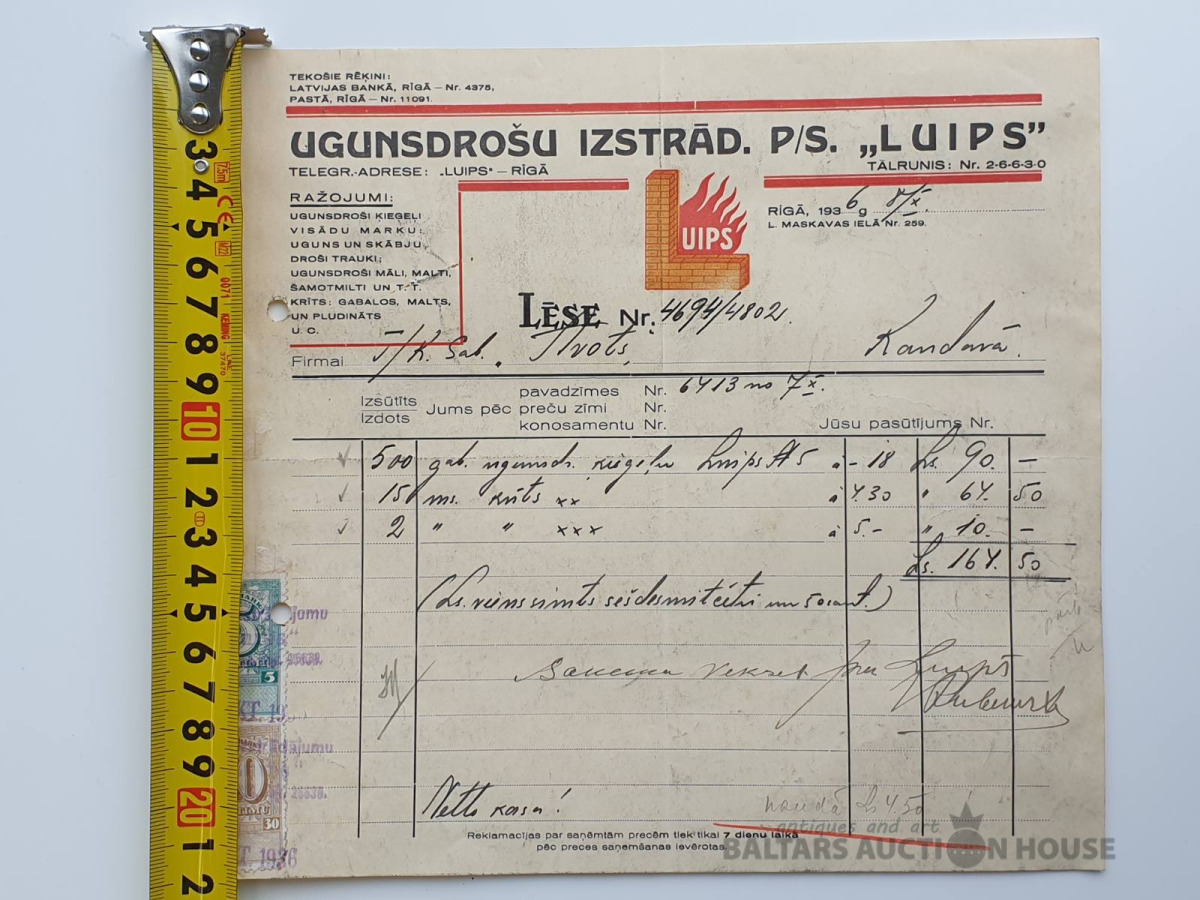 TEKOŠIE RĒĶINI:
LATVIJAS BANKĀ, RĪGĀ — Nr. 4375,
PASTĀ, RĪGĀ — Nr. 11091.
UGUNSDROŠU IZSTRĀD. P/S. „LUIPS”
TELEGR.-ADRESE: „LUIPS" — RĪGĀ
TĀLRUNIS: Nr. 2-6-6-3-0
RAŽOJUMI:
UGUNSDROŠI ĶIEĢEĻI
VISĀDU MARKU;
UGUNS UN SKĀBJU
DROŠI TRAUKI;
UGUNSDROŠI MĀLI, MALTI,
ŠAMOTMILTI UN T.T.
KRĪTS: GABALOS, MALTS,
UN PLUDINĀTS
U. C.
LUIPS
RĪGĀ, 1936 g 8/X.
L. MASKAVAS IELĀ Nr. 259.
LĒSE Nr. 4694/4802.
Firmai T/K. Sab. Kandavā.
Izsūtīts
Izdots
Jums pēc
pavadzīmes Nr. 6413 no 7/X.
preču zīmi Nr.
konosamentu Nr.
Jūsu pasūtījums Nr.
500 gab. ugunsdr. ķieģeļu Luips A5 à -18 Ls. 90. —
15 ms. krīts xx à 4.30 " 64. 50
2 " " xxx à 5.- " 10. —
Ls. 164. 50
(Ls. viens simts sešdesmit četri un 50 sant.)
Luips
Netto kasa!
naudā Ls 4,50
Reklamacijas par saņēmtām precēm tiek tikai 7 dienu laikā
pēc preces saņemšanas ievērotas.
5
30
1936
antiques and art
BALTARS AUCTION HOUSE
75m
CE
M22
0071
KEMING
3
4
5
6
7
8
9
10
1
2
3
4
5
6
7
8
9
20
1
2